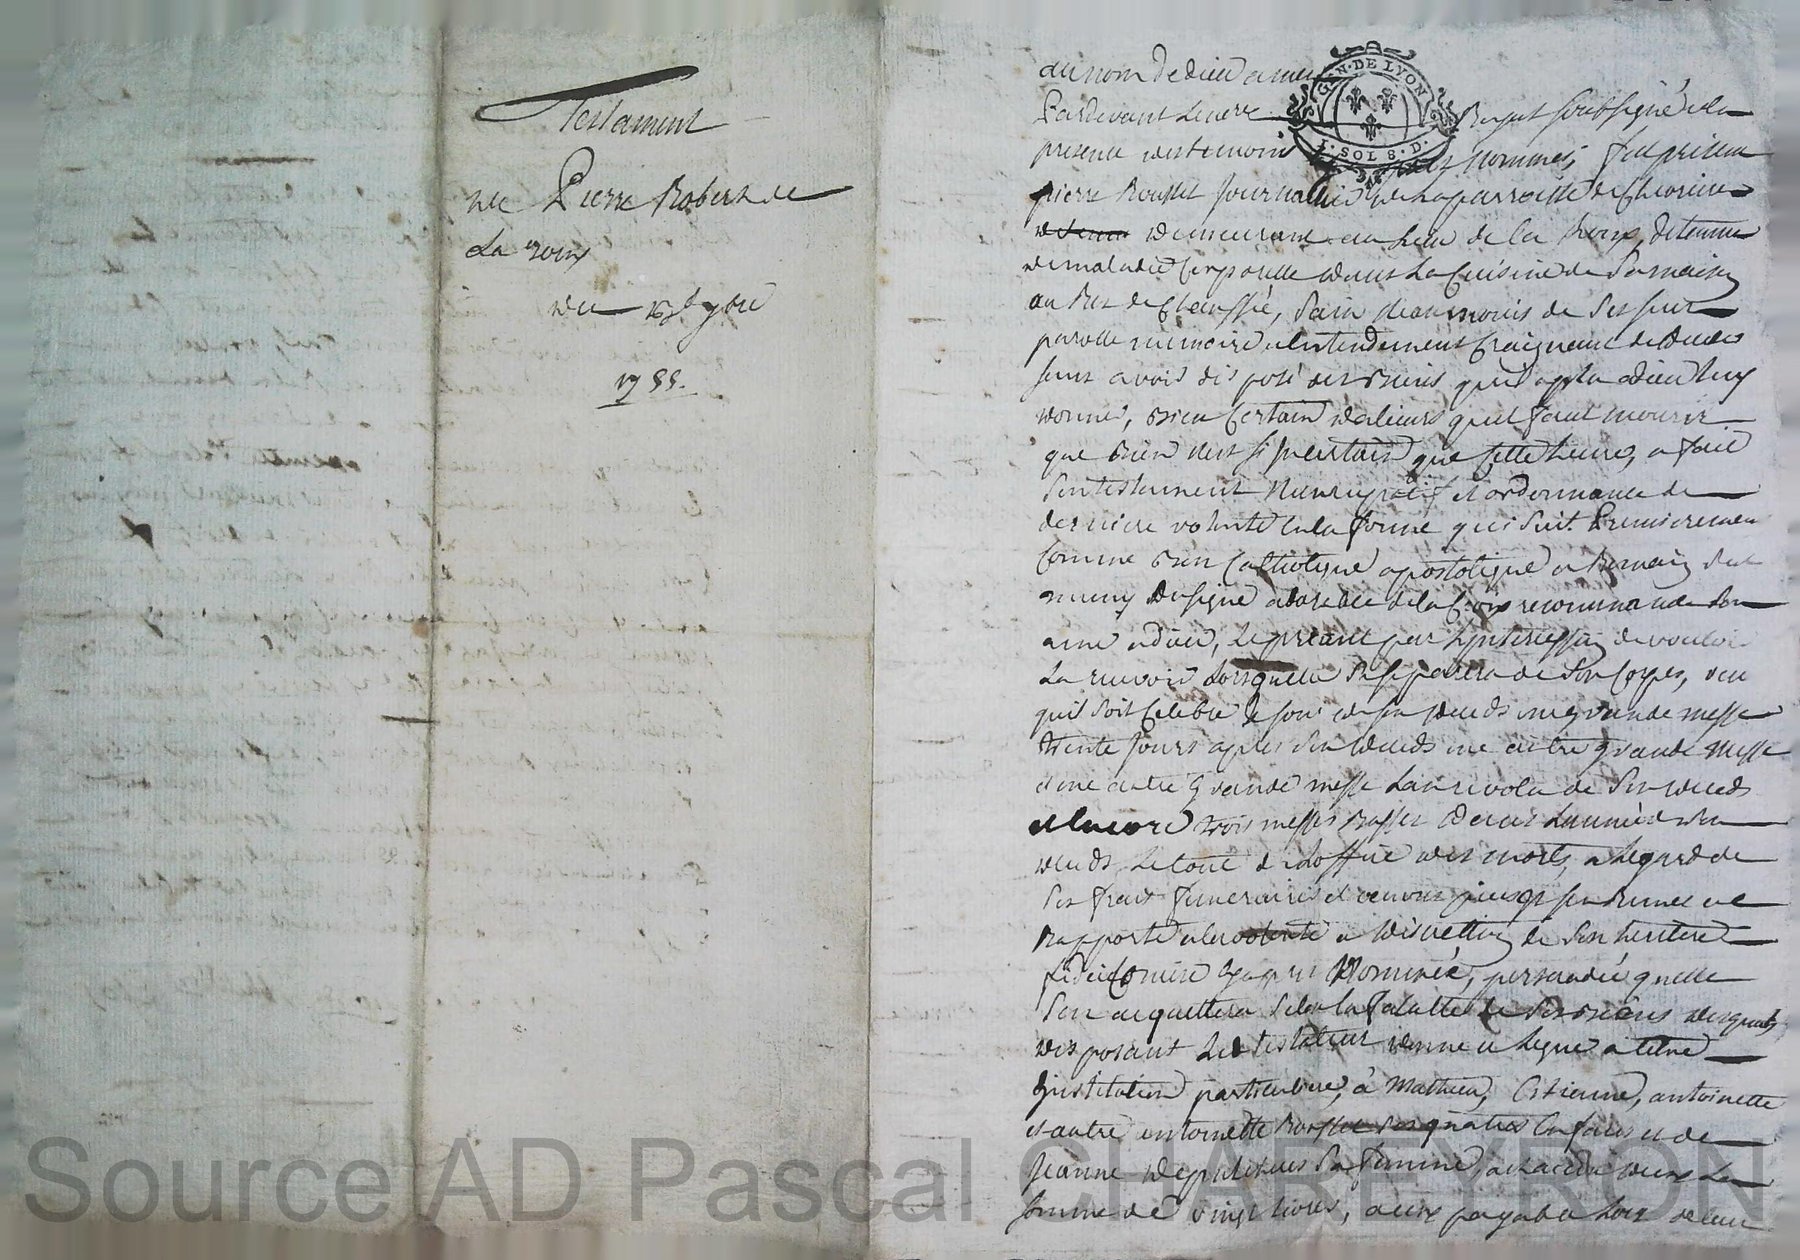 Testament
de Pierre Robert de
La Croix
du 16 9bre
1755.
au nom de dieu amen
Pardevant Lenore
GN. DE LYON
1. SOL 8. D.
soubsigné et en
presence des temoins nommés, fut present
pierre Rousset Journallier de La parroisse de
demeurant au Lieu de la Croix, detenu
de maladie Corporelle dans La Cuisine de Sa maison
au Rez de Chaussée, Sain neanmoins de Ses sens
parolle memoire entendement Craignant de deceder
sans avoir disposé des Biens qu'il a plu a dieu luy
donner, Bien Certain dailleurs quil faut mourir
que Rien nest si Incertain que Cette heure, a fait
Son testament Nuncupatif et ordonnance de
derniere volonté en la forme qui suit Premierement
Comme Bon Catholique apostolique et Romain Sest
muny Du Signe adorable de la Croix recommande Son
ame a dieu, le priant par de vouloir
La recevoir Lorsquelle Se separera de Son Corps, veu
quil soit Celebré le jour de son deceds une grande messe
trente jours apres Son deceds une autre grande messe
et une autre grande messe Lan revolu de Son deceds
et Encore trois messes Basses dans Lannée de son
deceds Le tout de Loffice des morts, a Legard de
Ses frais funeraires et
Rapporte a la volonté et discretion de Son heritiere
fideicomise yapres Nommée, persuadé quelle
Sen acquittera Selon La faculté de Ses Biens desquels
disposant Led testateur donne et Legue a titre
dinstitution particuliere, à Mathieu, Estienne, antoinette
et autre antoinette Rousset Ses quatre Enfans et de
Jeanne Sa femme, a chacun deux La
somme de vingt livres, a eux payable Lors de leur
Source AD Pascal CHAREYRON